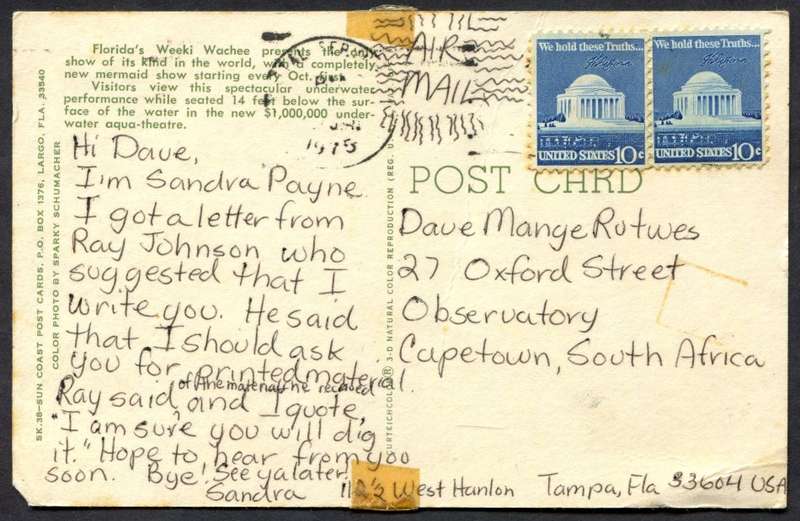 Florida's Weeki Wachee presents the only
show of its kind in the world, with a completely
new mermaid show starting every Oct. first.
Visitors view this spectacular underwater
performance while seated 14 feet below the sur-
face of the water in the new $1,000,000 under-
water aqua-theatre.
SK.38—SUN COAST POST CARDS, P.O. BOX 1376, LARGO, FLA. 33540
COLOR PHOTO BY SPARKY SCHUMACHER
Hi Dave,
I'm Sandra Payne
I got a letter from
Ray Johnson who
suggested that I
write you. He said
that I should ask
you for printed material.
of the materials he recieved
Ray said, and I quote,
"I am sure you will dig
it." Hope to hear from you
soon. Bye! See ya later,
Sandra
1975
AIR
MAIL
We hold these Truths...
UNITED STATES 10c
We hold these Truths...
UNITED STATES 10c
POST CARD
3-D NATURAL COLOR REPRODUCTION (REG. U.
Dave Mange Rutwes
27 Oxford Street
Observatory
Capetown, South Africa
West Hanlon Tampa, Fla 33604 USA